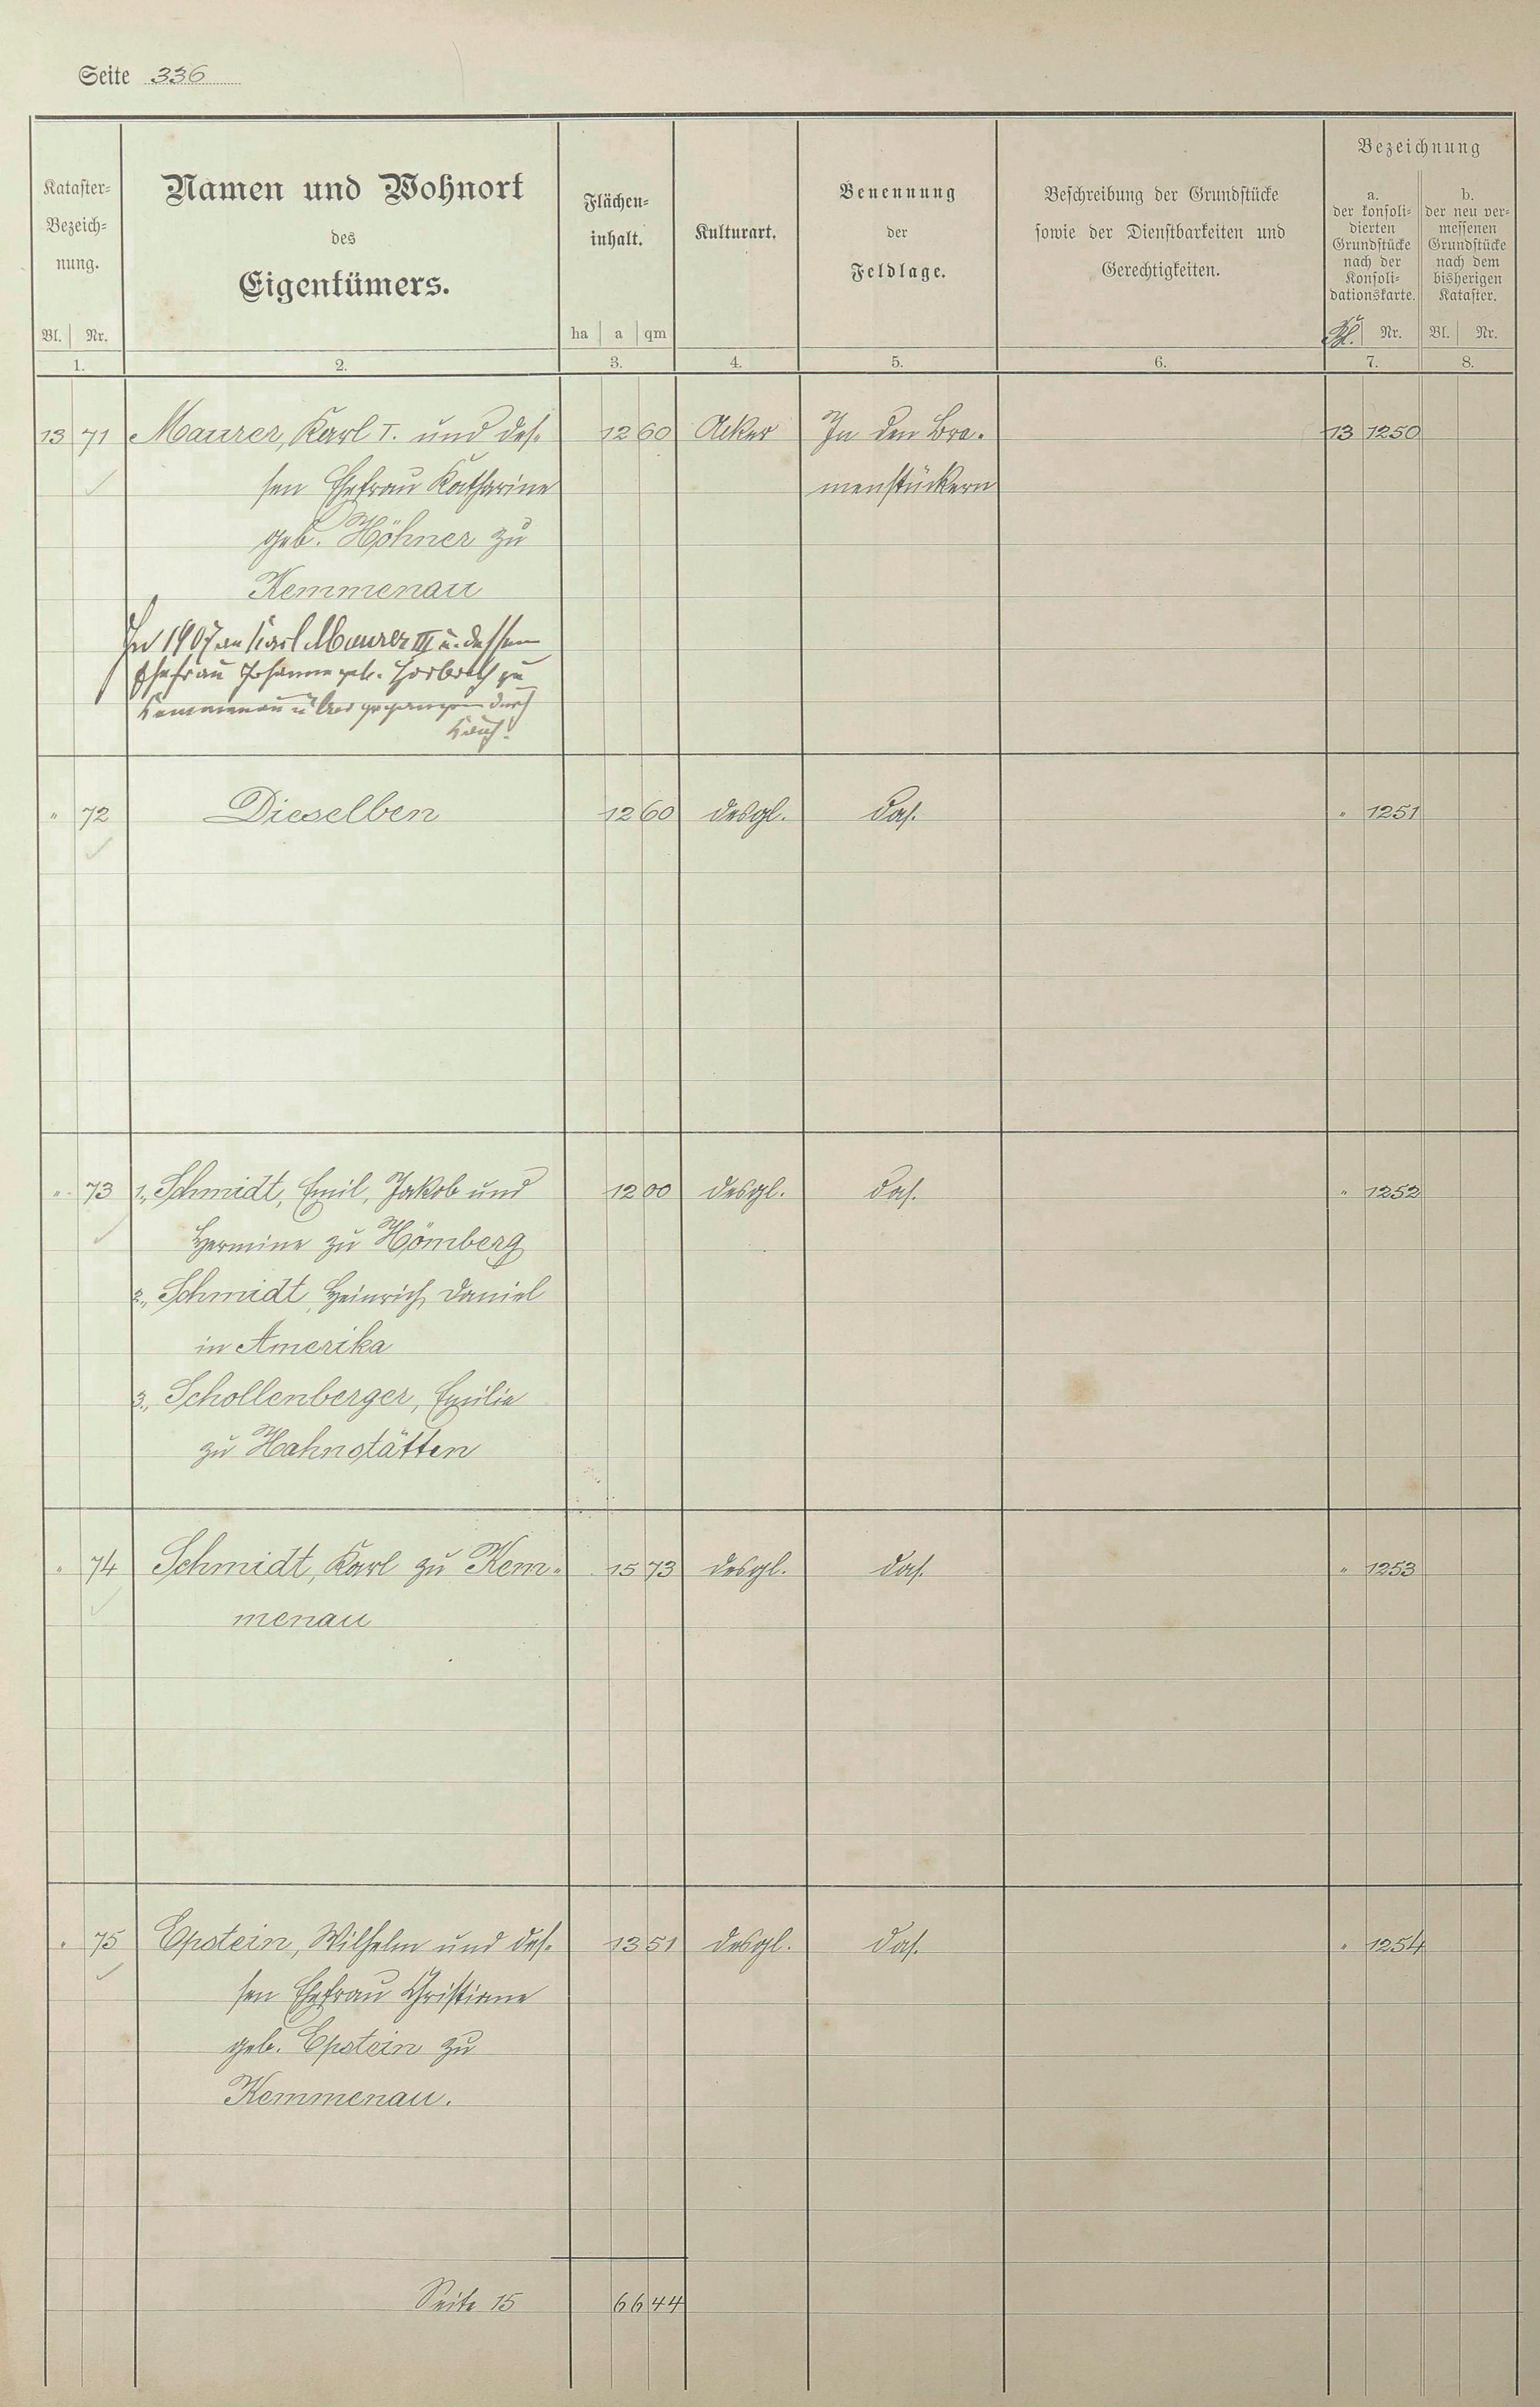 Seite 336
Kataster-
Bezeich-
nung.
Bl. Nr.
1.
Namen und Wohnort
des
Eigentümers.
2.
Flächen-
inhalt.
ha a qm
3.
Kulturart.
4.
Benennung
der
Feldlage.
5.
Beschreibung der Grundstücke
sowie der Dienstbarkeiten und
Gerechtigkeiten.
6.
Bezeichnung
a.
der konsoli-
dierten
Grundstücke
nach der
Konsoli-
dationskarte.
Nr.
7.
b.
der neu ver-
messenen
Grundstücke
nach dem
bisherigen
Kataster.
Bl. Nr.
8.
13 71 Maurer, Karl I. und des- 12 60 Acker In den Bra- 13 1250
sen Ehefrau Katharine menstückern
geb. Höhner zu
Kemmenau
In 1907 an Karl Maurer III u. dessen
Ehefrau Johanne geb. zu
Kemmenau übergegangen durch
Kauf.
" 72 Dieselben 12 60 desgl. das. " 1251
" 73 1., Schmidt, Emil, Jakob und 12 00 desgl. das. " 1252
Hermine zu Hömberg
2., Schmidt, Heinrich, Daniel
in Amerika
3., Schollenberger, Emilie
zu Hahnstätten
" 74 Schmidt, Karl zu Kem- 15 73 desgl. das. " 1253
menau
" 75 Epstein, Wilhelm und des- 13 51 desgl. das. " 1254
sen Ehefrau Christiane
geb. Epstein zu
Kemmenau.
Seite 15 66 44